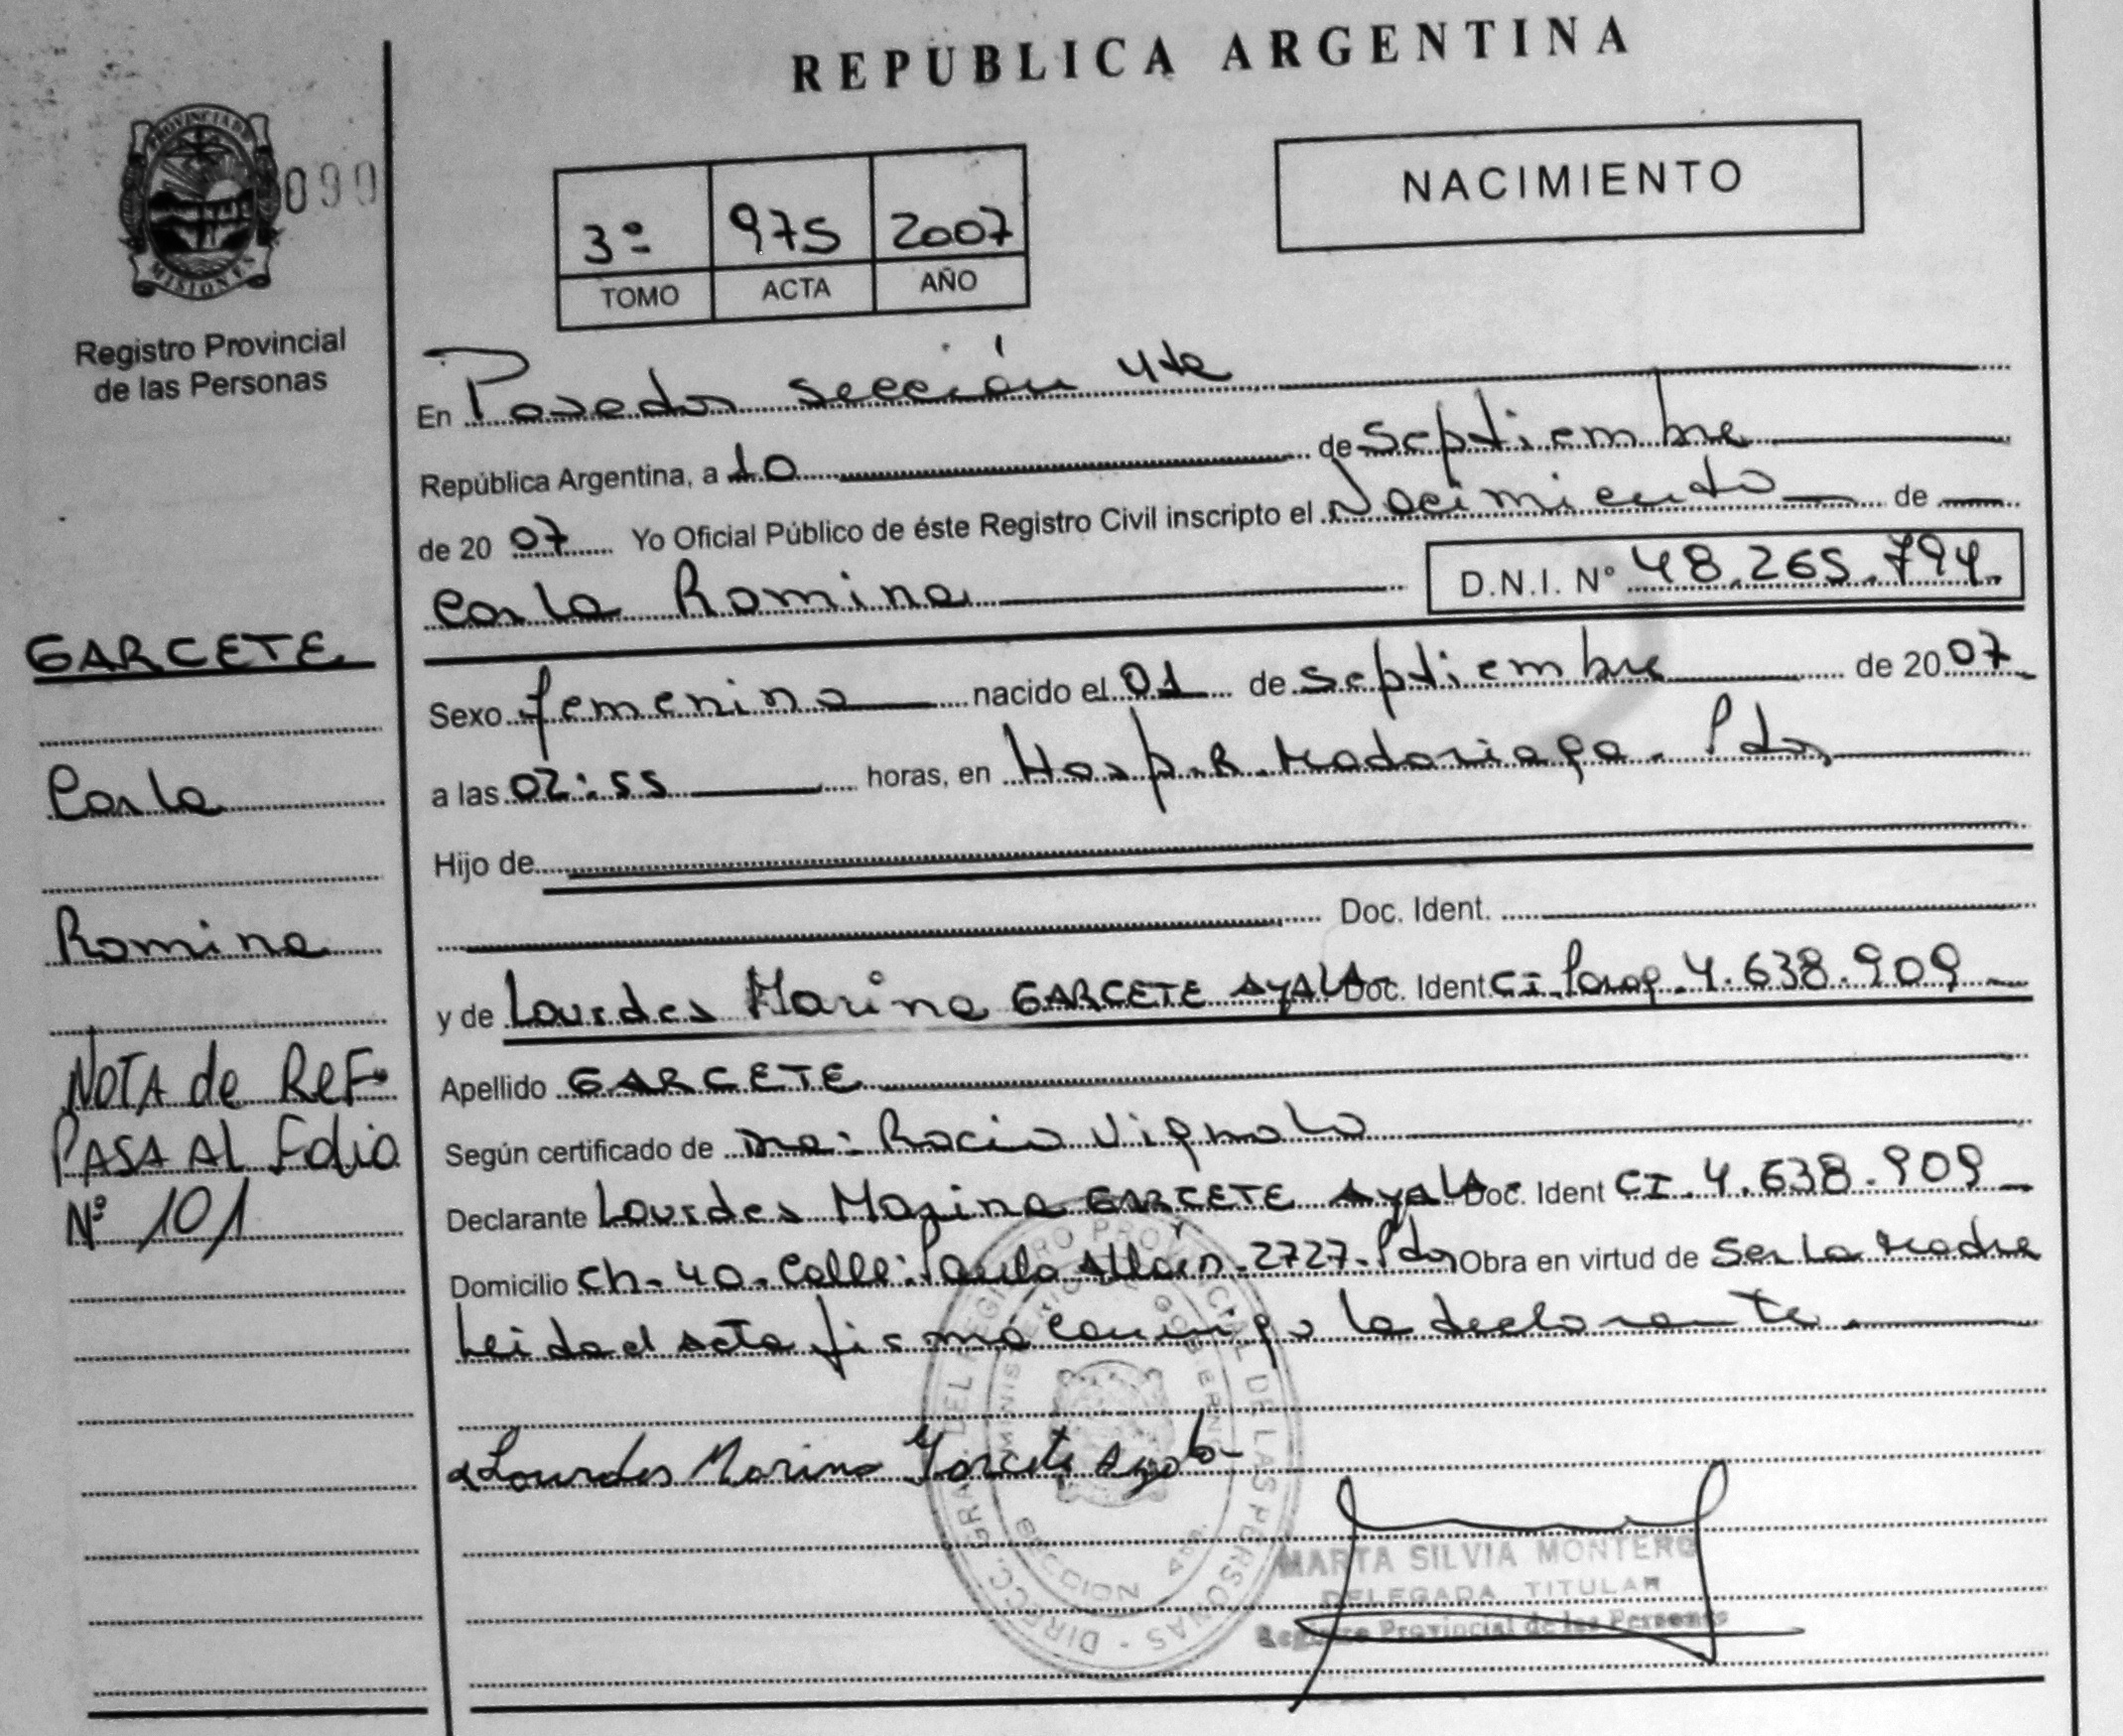 REPUBLICA ARGENTINA
PROVINCIA DE
MISIONES
090
Registro Provincial
de las Personas
3º 975 2007
TOMO ACTA AÑO
NACIMIENTO
En Posadas sección 4ta
República Argentina, a 10 de septiembre
de 20 07 Yo Oficial Público de éste Registro Civil inscripto el Nacimiento de
Carla Romina D.N.I. Nº 48.265.794
Sexo femenino nacido el 01 de septiembre de 20 07
a las 02:55 horas, en Hosp. R. Madariaga. Pdas
Hijo de
Doc. Ident.
y de Lourdes Marina GARCETE AYALA Doc. Ident CI. Parag. 4.638.909
Apellido GARCETE
Según certificado de Dra: Rocio Vignolo
Declarante Lourdes Marina GARCETE AyALA Doc. Ident CI. 4.638.909
Domicilio Ch-40. Calle: 2727. Pdas Obra en virtud de Ser la Madre
Leida el acta firma conmigo la declarante.
Lourdes Marina Garcete Ayala
GARCETE
Carla
Romina
NOTA de REFª
PASA AL Folio
Nº 101
DIRECC. GRAL. DEL REGISTRO PROVINCIAL DE LAS PERSONAS
MINISTERIO GOBIERNO
SECCION 4ta.
MARTA SILVIA MONTERO
DELEGADA TITULAR
Registro Provincial de las Personas